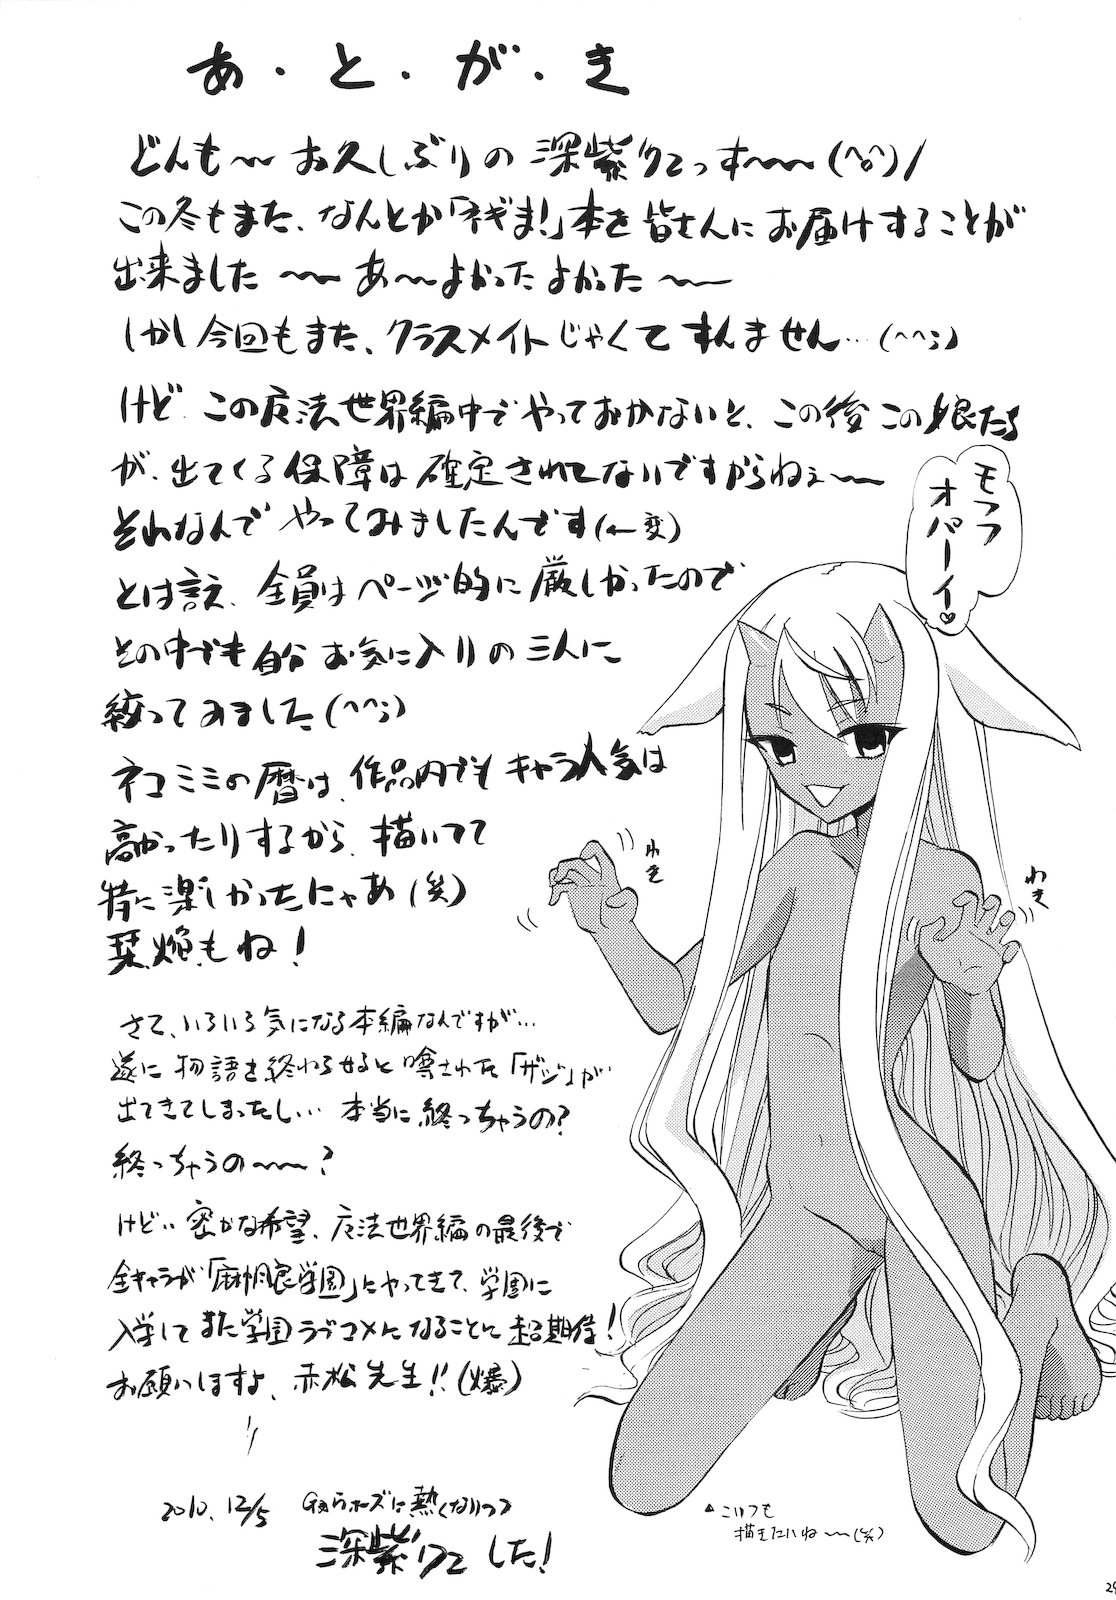 あ・と・が・き
どんも〜〜お久しぶりの深紫クてっす〜〜〜(^o^)/
この冬もまた、なんとか「ネギま!」本を皆さんにお届けすることが
出来ました〜〜あ〜〜よかったよかった〜〜
しかし今回もまた、クラスメイトじゃくてすんません…(^^;)
けど、この魔法世界編中でやっておかないと、この後この娘たち
が、出てくる保障は確定されてないですからねぇ〜〜
それなんでやってみましたんです(←変)
とは言え、全員はページ的に厳しかったので
その中でも自分お気に入りの三人に
絞ってみました(^^;)
ネコミミの暦は、作品内でもキャラ人気は
高かったりするから、描いてて
特に楽しかったにゃあ(笑)
栞、焔もね!
さて、いろいろ気になる本編なんですが…
遂に物語を終わらせると噂された「ザジ」が
出てきてしまったし…本当に終っちゃうの?
終っちゃうの〜〜?
けど…密かな希望、魔法世界編の最後で
全キャラが「麻帆良学園」にやってきて、学園に
入学してまた学園ラブコメになることに超期待!
お願いしますよ、赤松先生!!(爆)
2010.12/5
に熱くなりつつ
深紫 した!
モフフ
オパーイ♡
わき
わき
▲こいつも
描きたいね〜〜(笑)
29